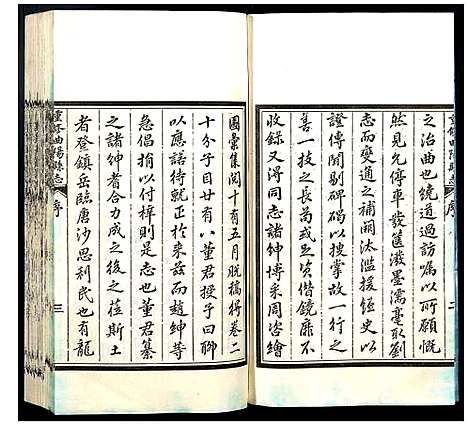 之治曲也繞道過訪囑以所願慨
然見允停車發篋潑墨濡毫取劉
志而變通之補闕汰濫援恆史以
證傳聞剔碑碣以搜掌故一行之
善一技之長為戒足資借鏡靡不
收錄又得同志諸紳博采周咨繪
圖彙集閱十有五月脫稿得卷二
十分子目廿有八董君授予曰聊
以應諾待就正於來茲而趙紳等
急倡捐以付梓則是志也董君纂
之諸紳耆合力成之後之蒞斯土
者登鎮岳臨唐沙思利民也有龍
重修曲陽縣志
序
三
重修曲陽縣志
序
二